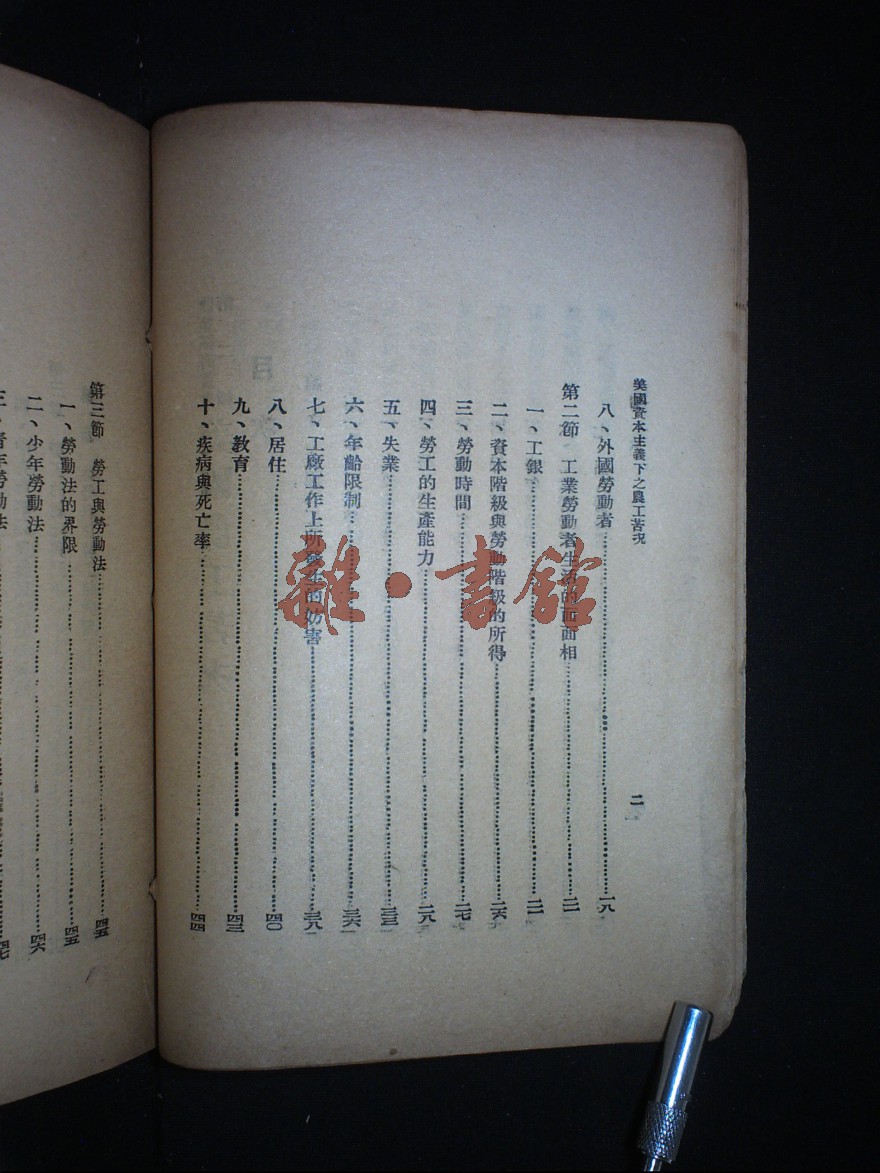 美國資本主義下之農工苦況
二
八、外國勞動者……一八
第二節 工業勞動者生活的面面相……二一
一、工銀……二一
二、資本階級與勞動階級的所得……二六
三、勞動時間……二七
四、勞工的生產能力……二八
五、失業……三三
六、年齡限制……三六
七、工廠工作上所發生的妨害……三八
八、居住……四〇
九、教育……四三
十、疾病與死亡率……四四
第三節 勞工與勞動法……四五
一、勞動法的界限……四五
二、少年勞動法……四六
三、青年勞動法……四七
雜·書館